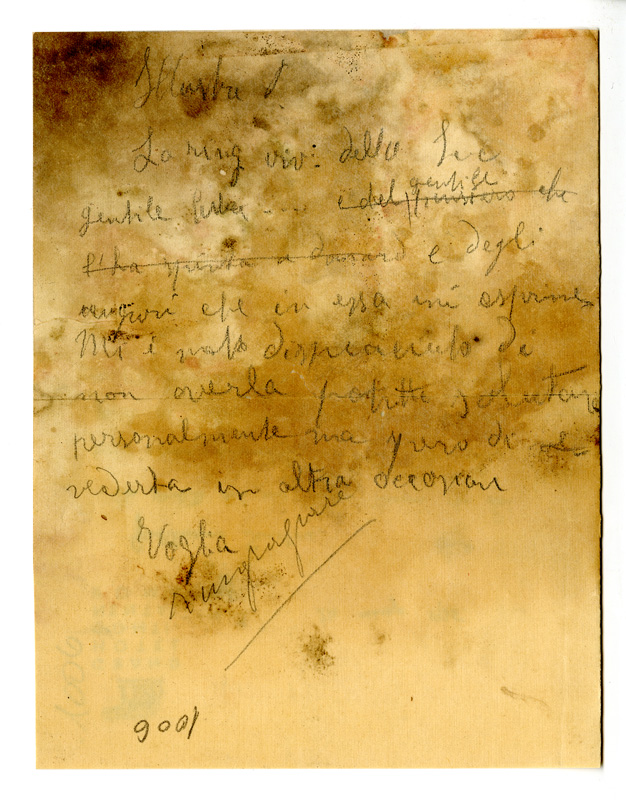 Illustre S.
La ring viv: della Sua
gentile lettera ... e del gentile pensiero che
l'ha spinta a donare e degli
auguri che in essa mi esprime
Mi è molto dispiaciuto di
non averla potuto salutare
personalmente ma spero di
vederla in altra occasione
Voglia
ringraziare
1006